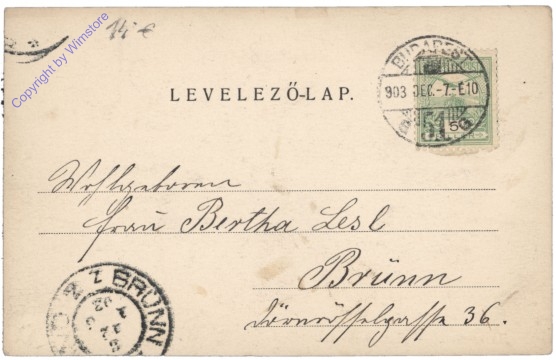 Copyright by Wimstore
14 €
BUDAPEST
903 DEC.-7.-E10
LEVELEZŐ-LAP.
Wohlgeboren
Frau Bertha Lesl
Brünn
36.
BRÜNN